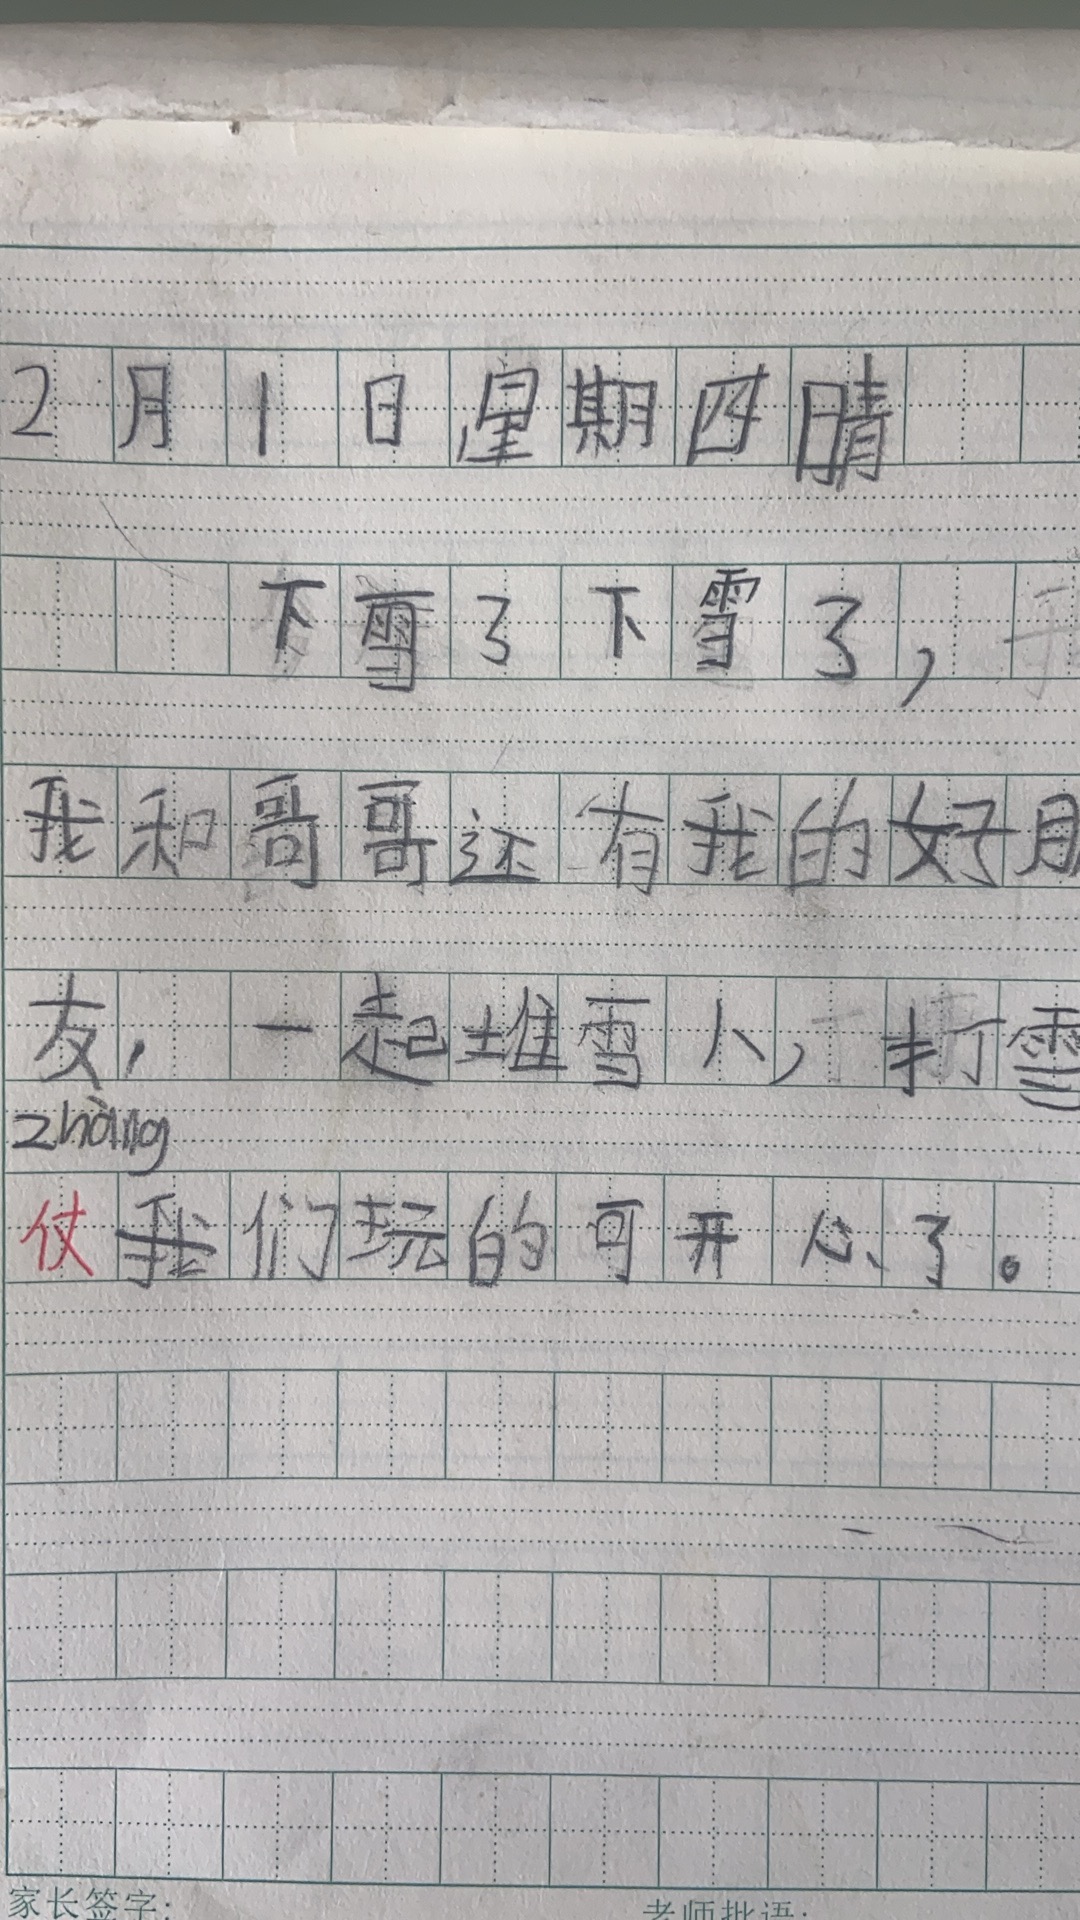 2月1日星期四晴
下雪了下雪了，
我和哥哥还有我的好朋
友，一起堆雪人，打雪
zhàng
仗我们玩的可开心了。
家长签字： 老师批语：